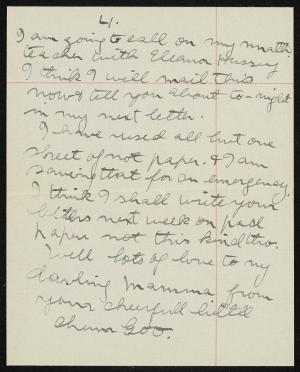 4.
I am going to call on my math.
teacher with Eleanor Hussey
I think I will mail this
now & tell you about to-night
in my next letter.
I have used all but one
sheet of not paper. & I am
saving that for an emergency.
I think I shall write your
letters next week on pad
paper not this kind tho.
Well lots of love to my
darling Mamma from
your cheerfull little
chum